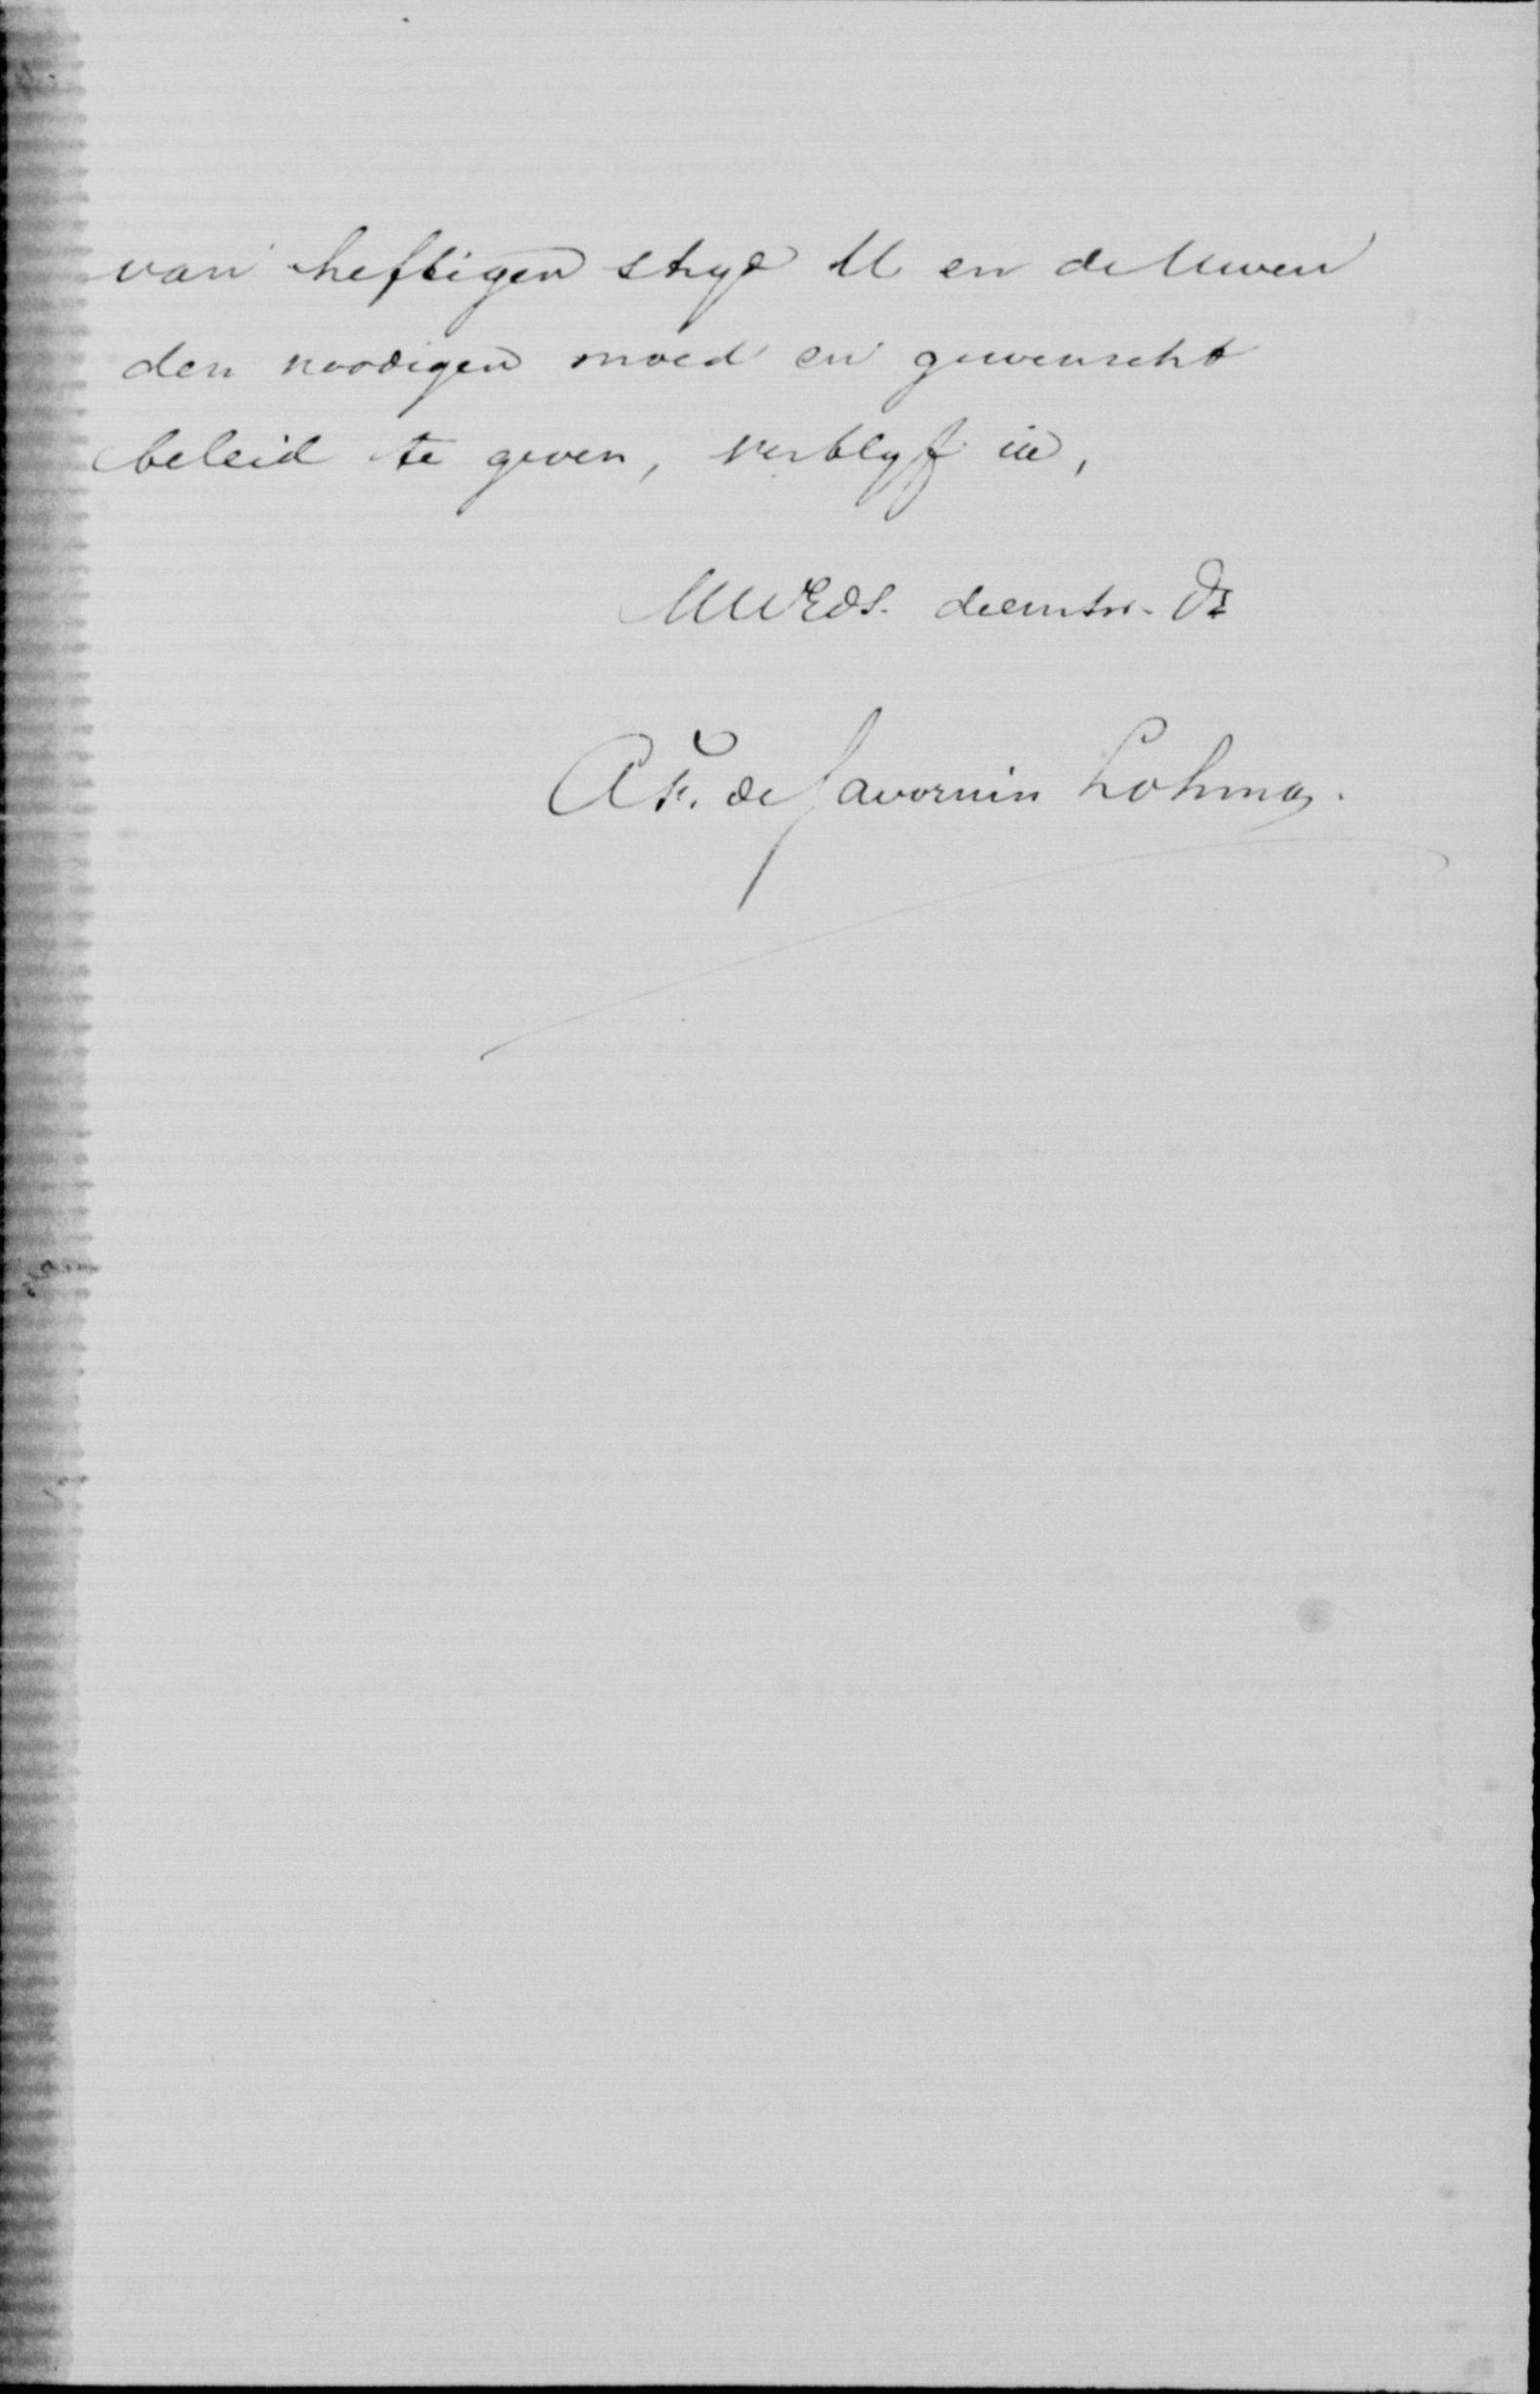 van heftigen stryd U en de Uwen
den noodigen moed en gewenscht
beleid te geven, verblyf ik,
UWEds. dienstw. Dr
AF. de Savornin Lohman.